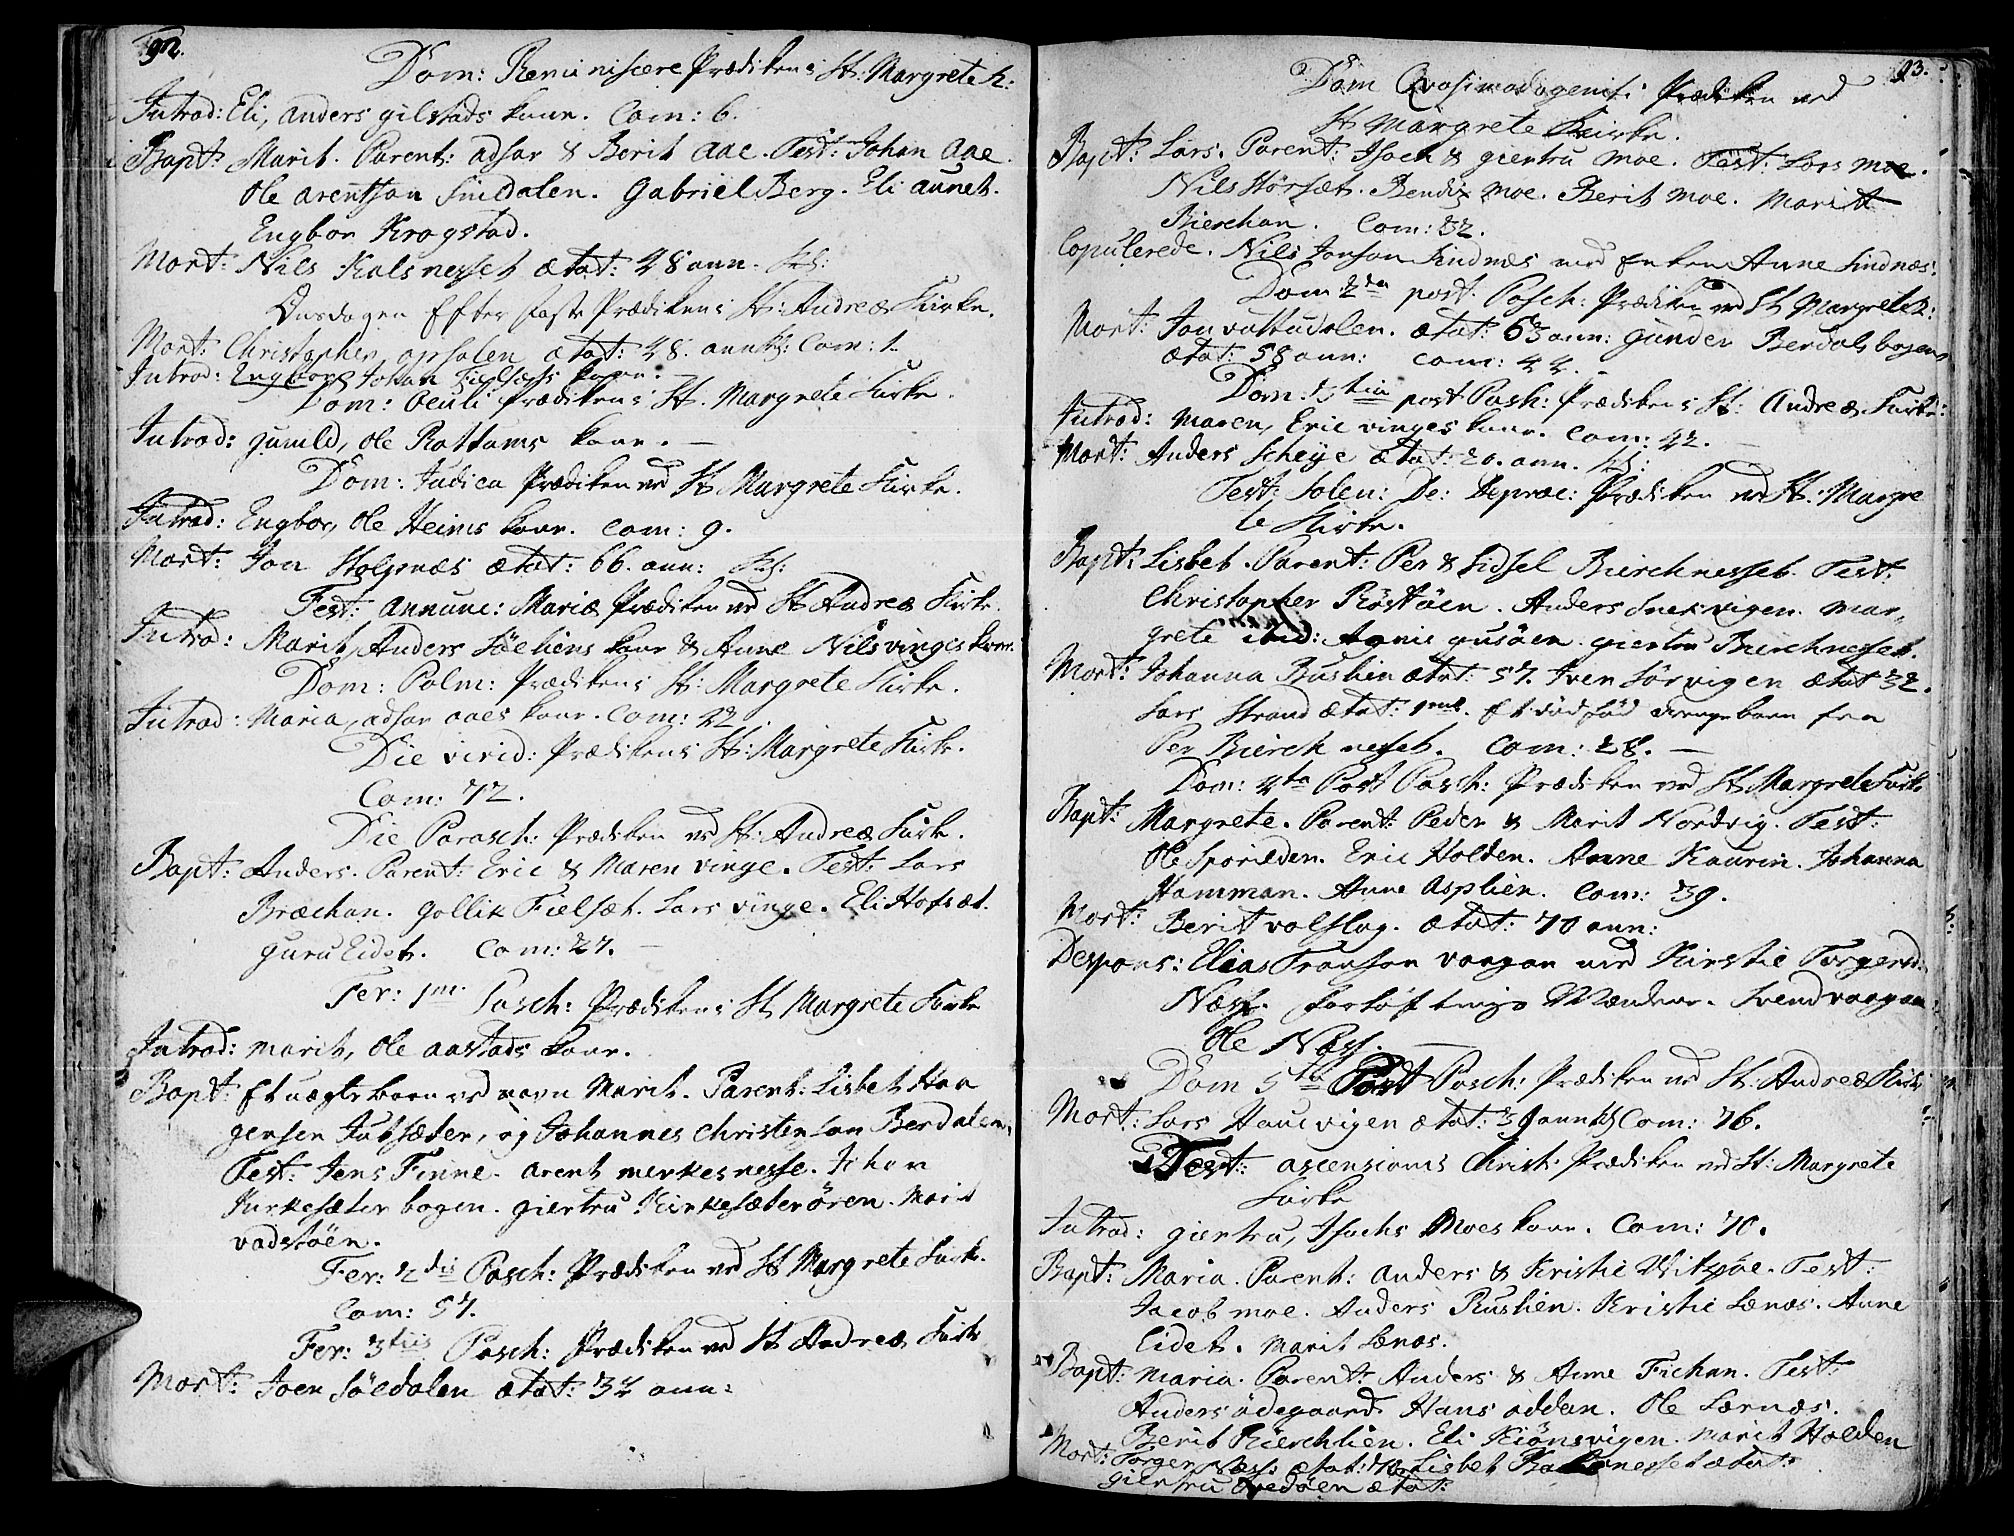 92.
Dom: Reminiscere Prædiken i St: Margrete K:
Introd: Eli, anders gilstads kone. Com: 6.
Bapt: Marit. Parent: adsar & Berit Aae. Test: Johan Aae.
Ole arentson Snildalen. Gabriel Berg. Eli aunet.
Engbor Krogstad.
Mort: Nils Kalsnesset ætat: 48 ann.
Onsdagen Efter faste Prædiken i St: Andreæ Kirke.
Mort: Christopher opsalen ætat: 48. ann: Com: 1.
Introd: Engbor Johan Fielsets kone.
Dom: Oculi Prædiken i St. Margrete Kirke.
Introd: gunild, Ole Rottams kone. —
Dom: Judica Prædiken ved St Margrete Kirke.
Introd: Engbor, Ole Heims kone. Com: 9.
Mort: Jon Holgenæs ætat: 66. ann:
Fest: annunc: Mariæ Prædiken ved St Andreæ Kirke.
Introd: Marit Anders Söeliens kone & Anne Nils vinges kone.
Dom: Palm: Prædiken i St: Margrete Kirke.
Introd: Maria, adsar aaes kone. Com: 42
Die virid: Prædiken i St: Margrete Kirke.
Com: 72.
Die Parasch: Prædiken ved St: Andreæ Kirke.
Bapt: Anders. Parent: Eric & Maren vinge. Test: Lars
Bræchan. Gollik Fielset. Lars vinge. Eli Hofset.
guru Eidet. Com: 27. —
Fer: 1mæ Pasch: Prædiken i St Margrete Kirke
Introd: marit, Ole aastads kone.
Bapt: Et uægte barn ved navn Marit. Parent: Lisbet Haa
gensen Jutsæter, og Johannes Christensen Berdalen.
Test: Jens Finne. arent merkesnesse. Johan
Kirkesæter bogen. giertru Kirkesæterören. Marit
vadstöen.
Fer: 2dis Pasch: Prædiken ved St Margrete Kirke.
Com: 57.
Fer: 3tiis Pasch: Prædiken ved St Andreæ Kirke
Mort: Joen Söedalen ætat: 32 ann:
93.
Dom Qvasimodogeniti Prædiken ved
St Margrete Kirke.
Bapt: Lars. Parent: Isach & giertru moe. Test: Lars moe.
Nils Hörset. Bendix moe. Berit moe. Marit
Bierchan. Com: 32.
Copulerede. Nils Jonson Sindnæs med Enken Anne Sindnæs.
Dom: 2da post. Pasch: Prædiken ved St Margrete K:
Mort: Jon vattudalen. ætat: 63 ann: gunder Berdalsbogen
ætat: 58 ann: Com: 44. —
Dom: 3tia post Pash: Prædiken i St: Andreæ Kirke:
Introd: Maren, Eric vinges kone. Com: 42. —
Mort: Anders Scheye ætat: 20. ann.
Fest: Solen: De: Depræc: Prædiken ved St: Margre
te Kirke.
Bapt: Lisbet. Parent: Per & Sidsel Bierchnesset. Test:
Christopher Röstöen. Anders Snekvigen. Mar-
grete ibid: Anne gusöen. giertru Bierchnesset.
Mort: Johanna Buslien ætat: 57. Iver Sörvigen ætat 32.
Lars Strand ætat: Et dödfød drengebarn fra
Per Bierchnesset. Com: 28. —
Dom: 4ta Post Pasch: Prædiken ved St Margrete Kirke
Bapt: Margrete. Parent: Peder & Marit Nordvig. Test:
Ole Sporilden. Eric Holden. Anne Kaurin. Johanna
Hamman. Anne Asplien. Com: 39.
Mort: Berit volslag. ætat: 70 ann:
Despons: Elias Franson vaagan med Kirstie Torgersd:
Næss. Forløftnings Mændene. Svend vaagan
Ole Næss. —
Dom 5ta Post Pasch: Prædiken ved St: Andreæ Kirke
Mort: Lars Haucvigen ætat: 39 ann Com: 76.
Fest: ascensionis Christi Prædiken ved St: Margrete
Kirke
Introd: giertru, Isachs Moes kone. Com: 70.
Bapt: Maria. Parent: anders & Kristie Vitzøe. Test:
Jacob moe. Anders Ruslien. Kristie Lænæs. Anne
Eidet. Marit Lænæs.
Bapt: maria. Parent: Anders & Anne Fichan. Test:
Anders ödegaard Hans oddan. Ole Lernæs.
Berit Kierchlien. Eli Kiönsvigen. Marit Holden
Mort: Torger Næss: ætat: 70. Lisbet ætat:
giertru ætat: